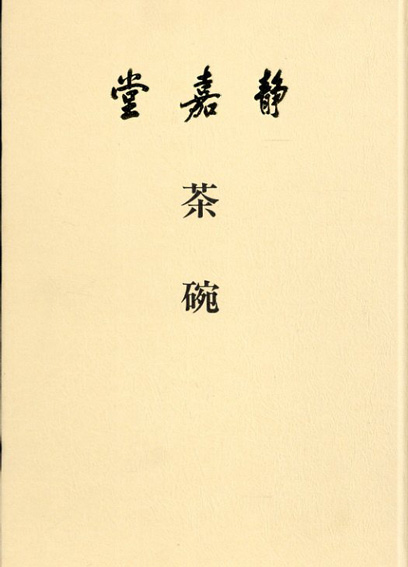 静嘉堂
茶碗